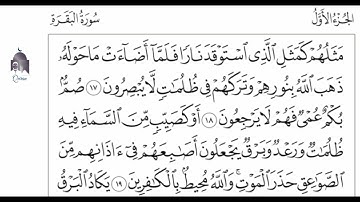 الجزء الأول
سورة البقرة
مَثَلُهُمْ كَمَثَلِ ٱلَّذِى ٱسْتَوْقَدَ نَارًا فَلَمَّآ أَضَآءَتْ مَا حَوْلَهُۥ
ذَهَبَ ٱللَّهُ بِنُورِهِمْ وَتَرَكَهُمْ فِى ظُلُمَٰتٍ لَّا يُبْصِرُونَ ١٧ صُمٌّۢ
بُكْمٌ عُمْىٌ فَهُمْ لَا يَرْجِعُونَ ١٨ أَوْ كَصَيِّبٍ مِّنَ ٱلسَّمَآءِ فِيهِ
ظُلُمَٰتٌ وَرَعْدٌ وَبَرْقٌ يَجْعَلُونَ أَصَٰبِعَهُمْ فِىٓ ءَاذَانِهِم مِّنَ
ٱلصَّوَٰعِقِ حَذَرَ ٱلْمَوْتِ ۚ وَٱللَّهُ مُحِيطٌۢ بِٱلْكَٰفِرِينَ ١٩ يَكَادُ ٱلْبَرْقُ